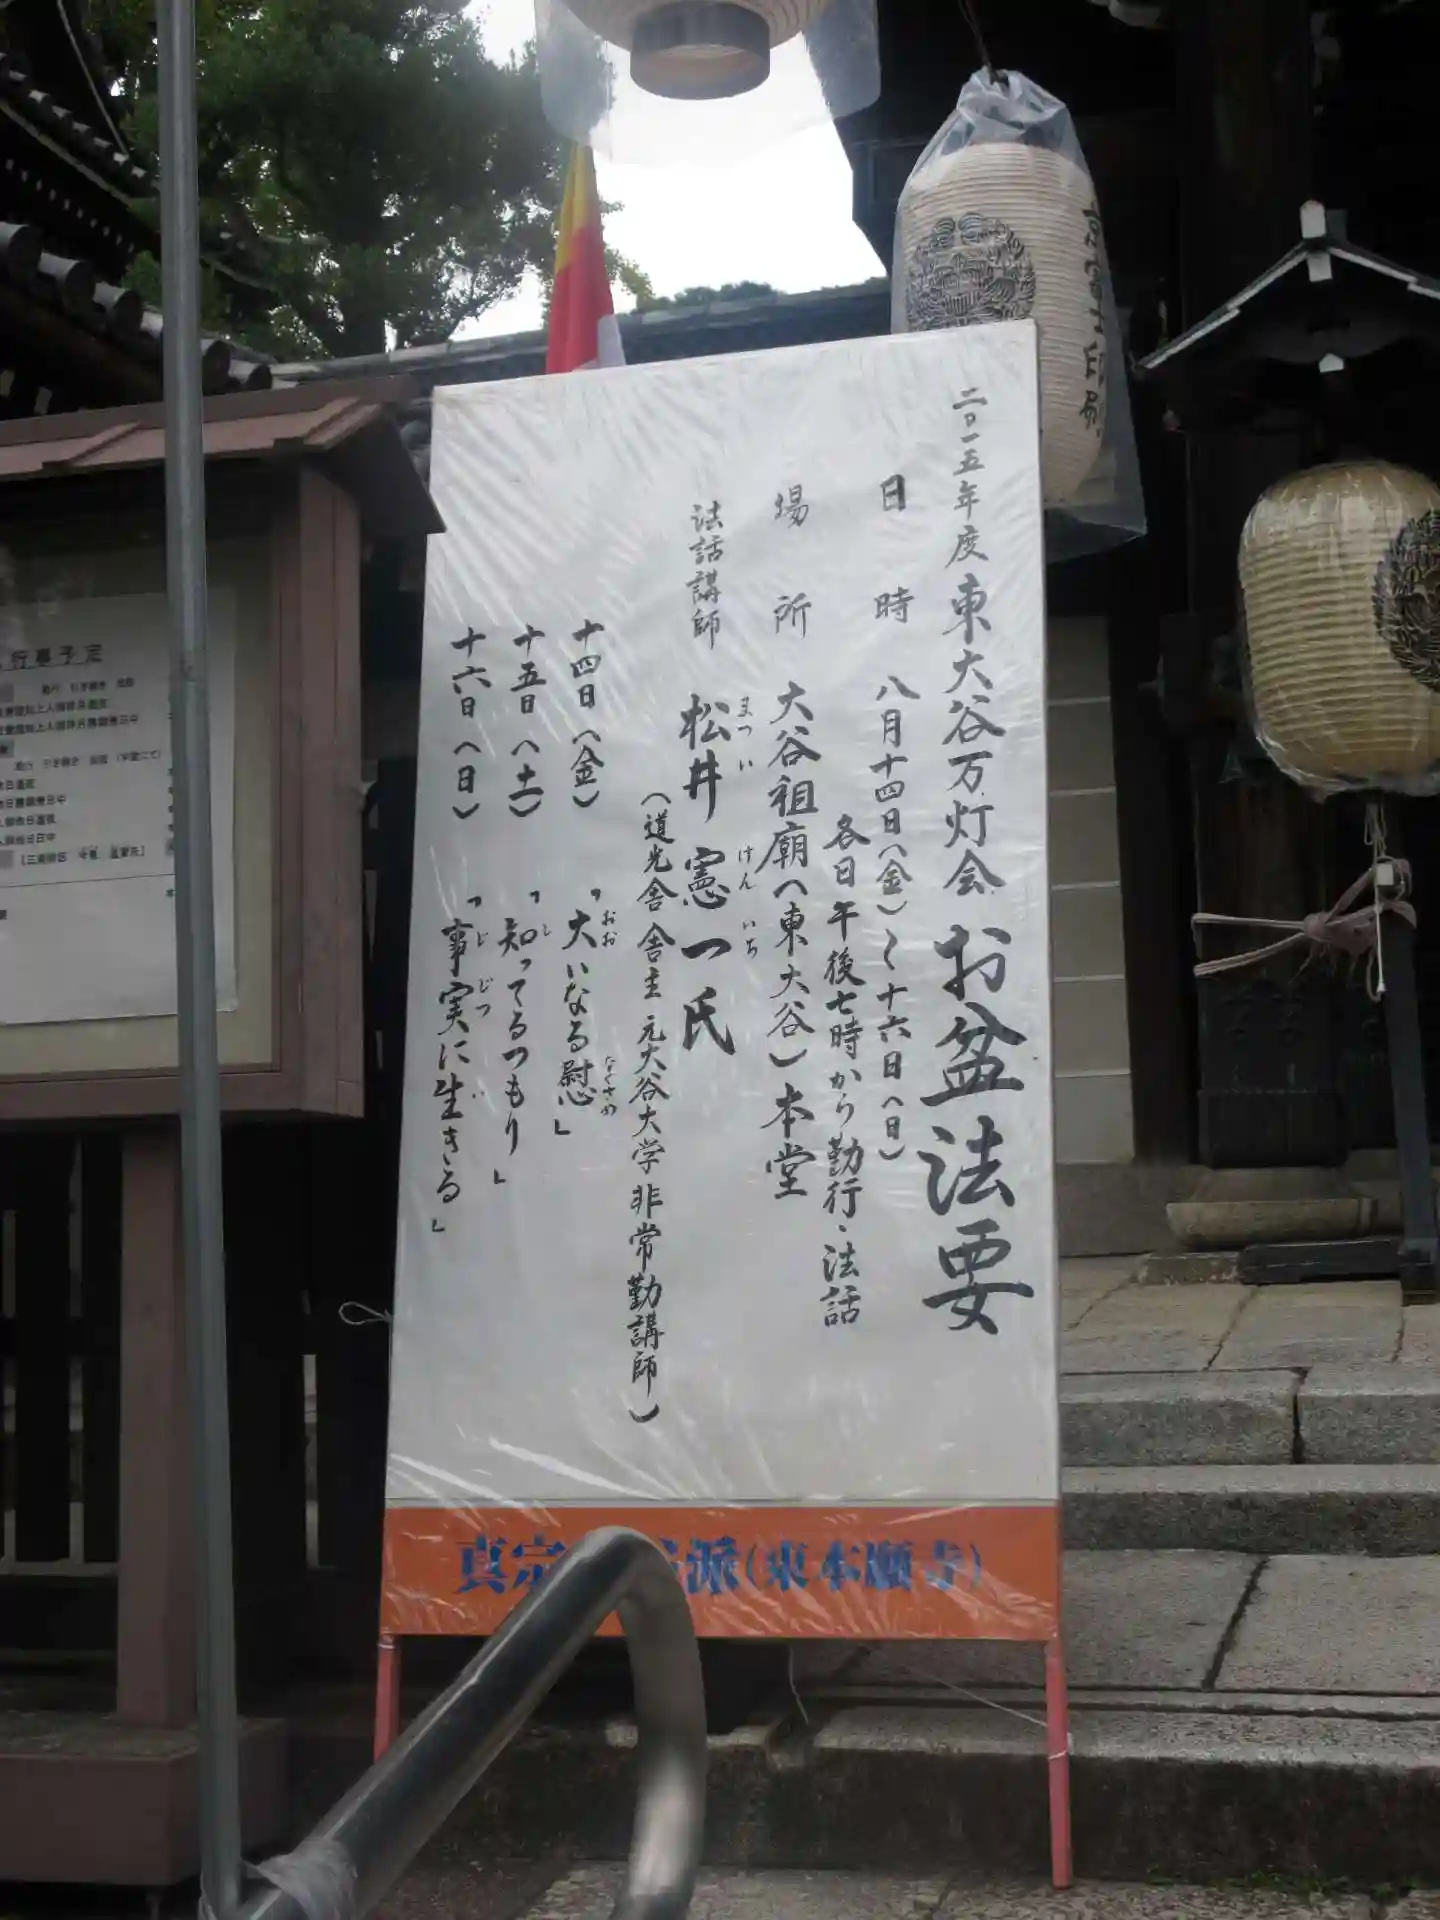 二〇一五年度 東大谷万灯会 お盆法要
日時 八月十四日(金)〜十六日(日)
各日午後七時から勤行・法話
場所 大谷祖廟(東大谷)本堂
法話講師 松井 憲一氏
まつい けんいち
(道光舎 舎主 元大谷大学 非常勤講師)
十四日(金) 「大いなる慰」
おお なぐさめ
十五日(土) 「知ってるつもり」
し
十六日(日) 「事実に生きる」
じじつ い
真宗 派(東本願寺)
行事予定